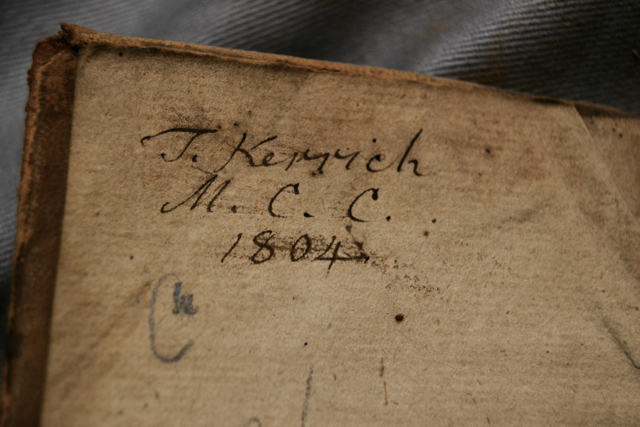 T. Kerrich
M. C. C. .
1804.